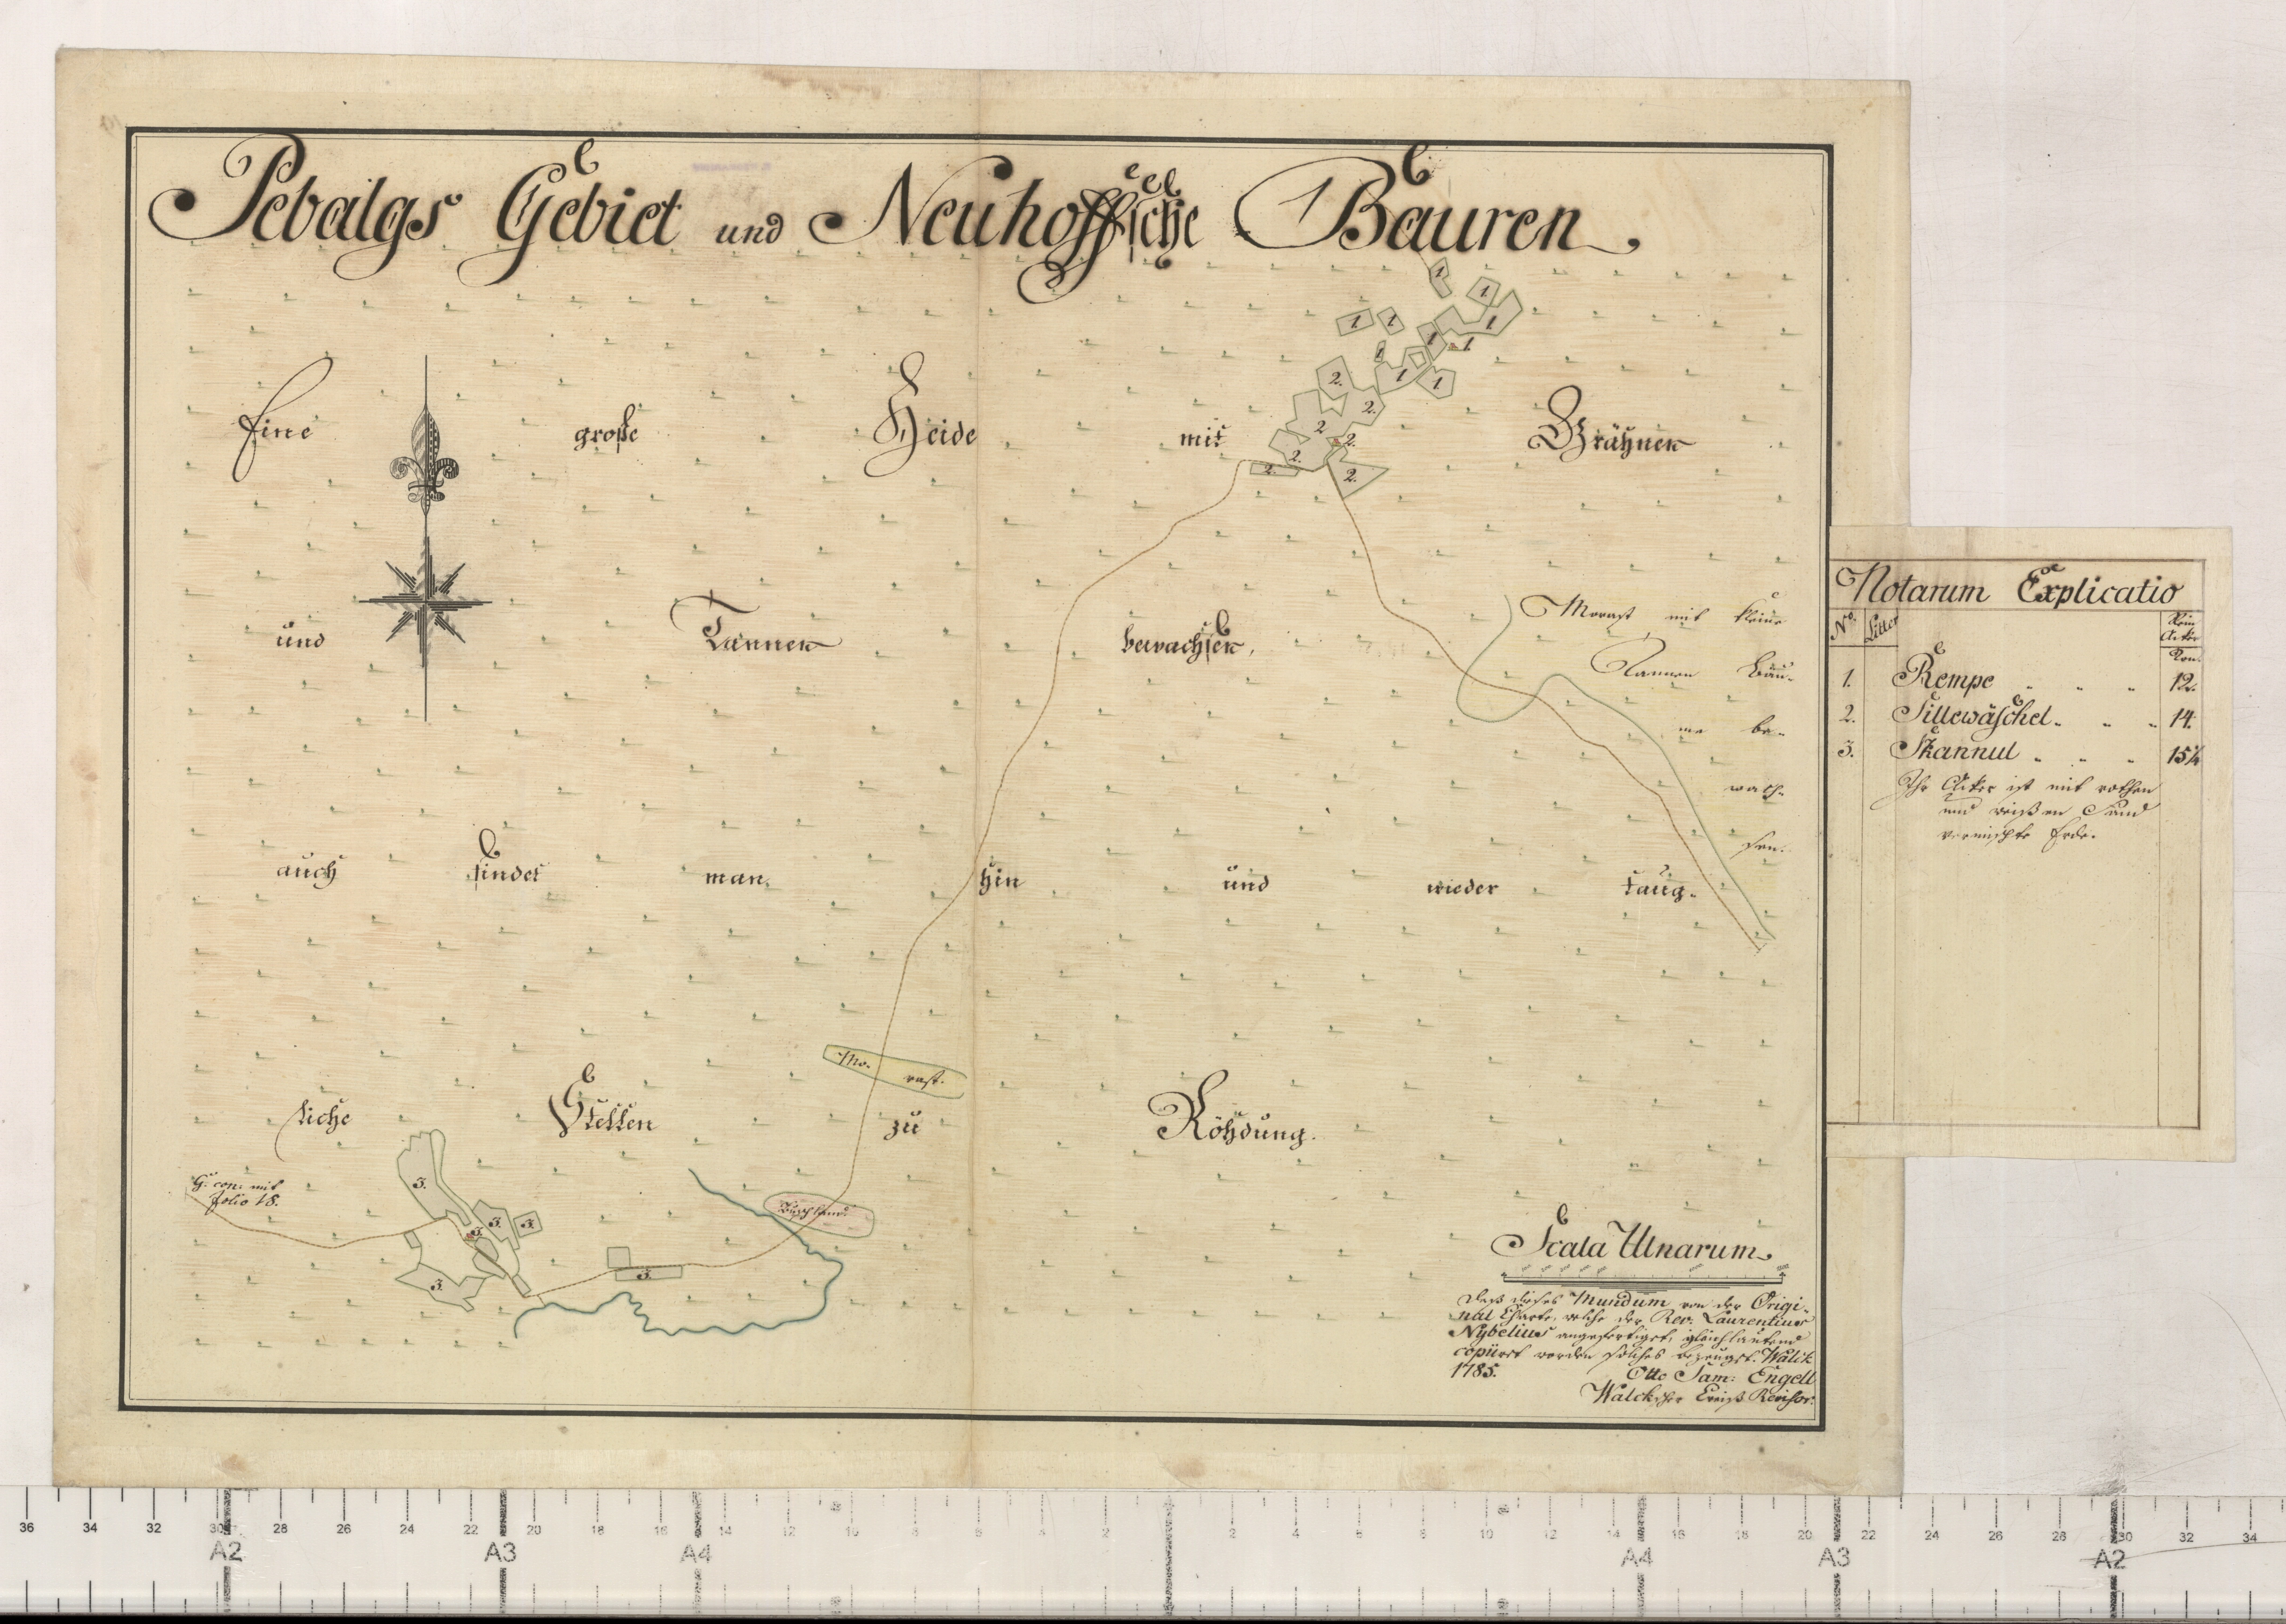 Pebalgs Gebiet und Neuhoffsche Bauren
Eine große Heide mit Grähnen
und Tannen bewachsen,
auch findet man hin und wieder taug-
liche Stellen zu Röhdung.
Morast mit kleine
Tannen Bäu-
me be-
wach-
sen.
Mo- rast.
Buschland
G: con: mit
folio 18.
1 1 1 1 1 1 1 1 1 1
2. 2. 2 2. 2. 2. 2.
3. 3. 3. 3. 3. 3.
Scala Ulnarum
Daß dieses Mundum von der Origi-
nal Charte, welche der Rev: Laurentius
Nybelius angefertiget, gleichlautend
copiiret worden solches bezeuget. Walck
1785. Otto Sam: Engell
Walckscher Creiß Revisor.
Notarum Explicatio
No. Litter Rein Acker
Lon.
1. Rempe 12.
2. Sillewäschel 14.
3. Skannul 15¼
Ihr Acker ist mit rothen
und weißen Sand
vermischte Erde.
36 34 32 30 28 26 24 22 20 18 16 14 12 10 8 6 4 2 2 4 6 8 10 12 14 16 18 20 22 24 26 28 30 32 34
A2 A3 A4 A4 A3 A2